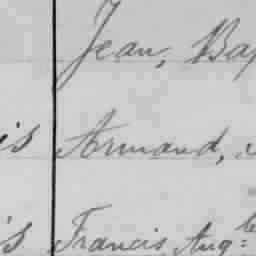 Jean, Bap
is Armand,
is Francis Aug:te